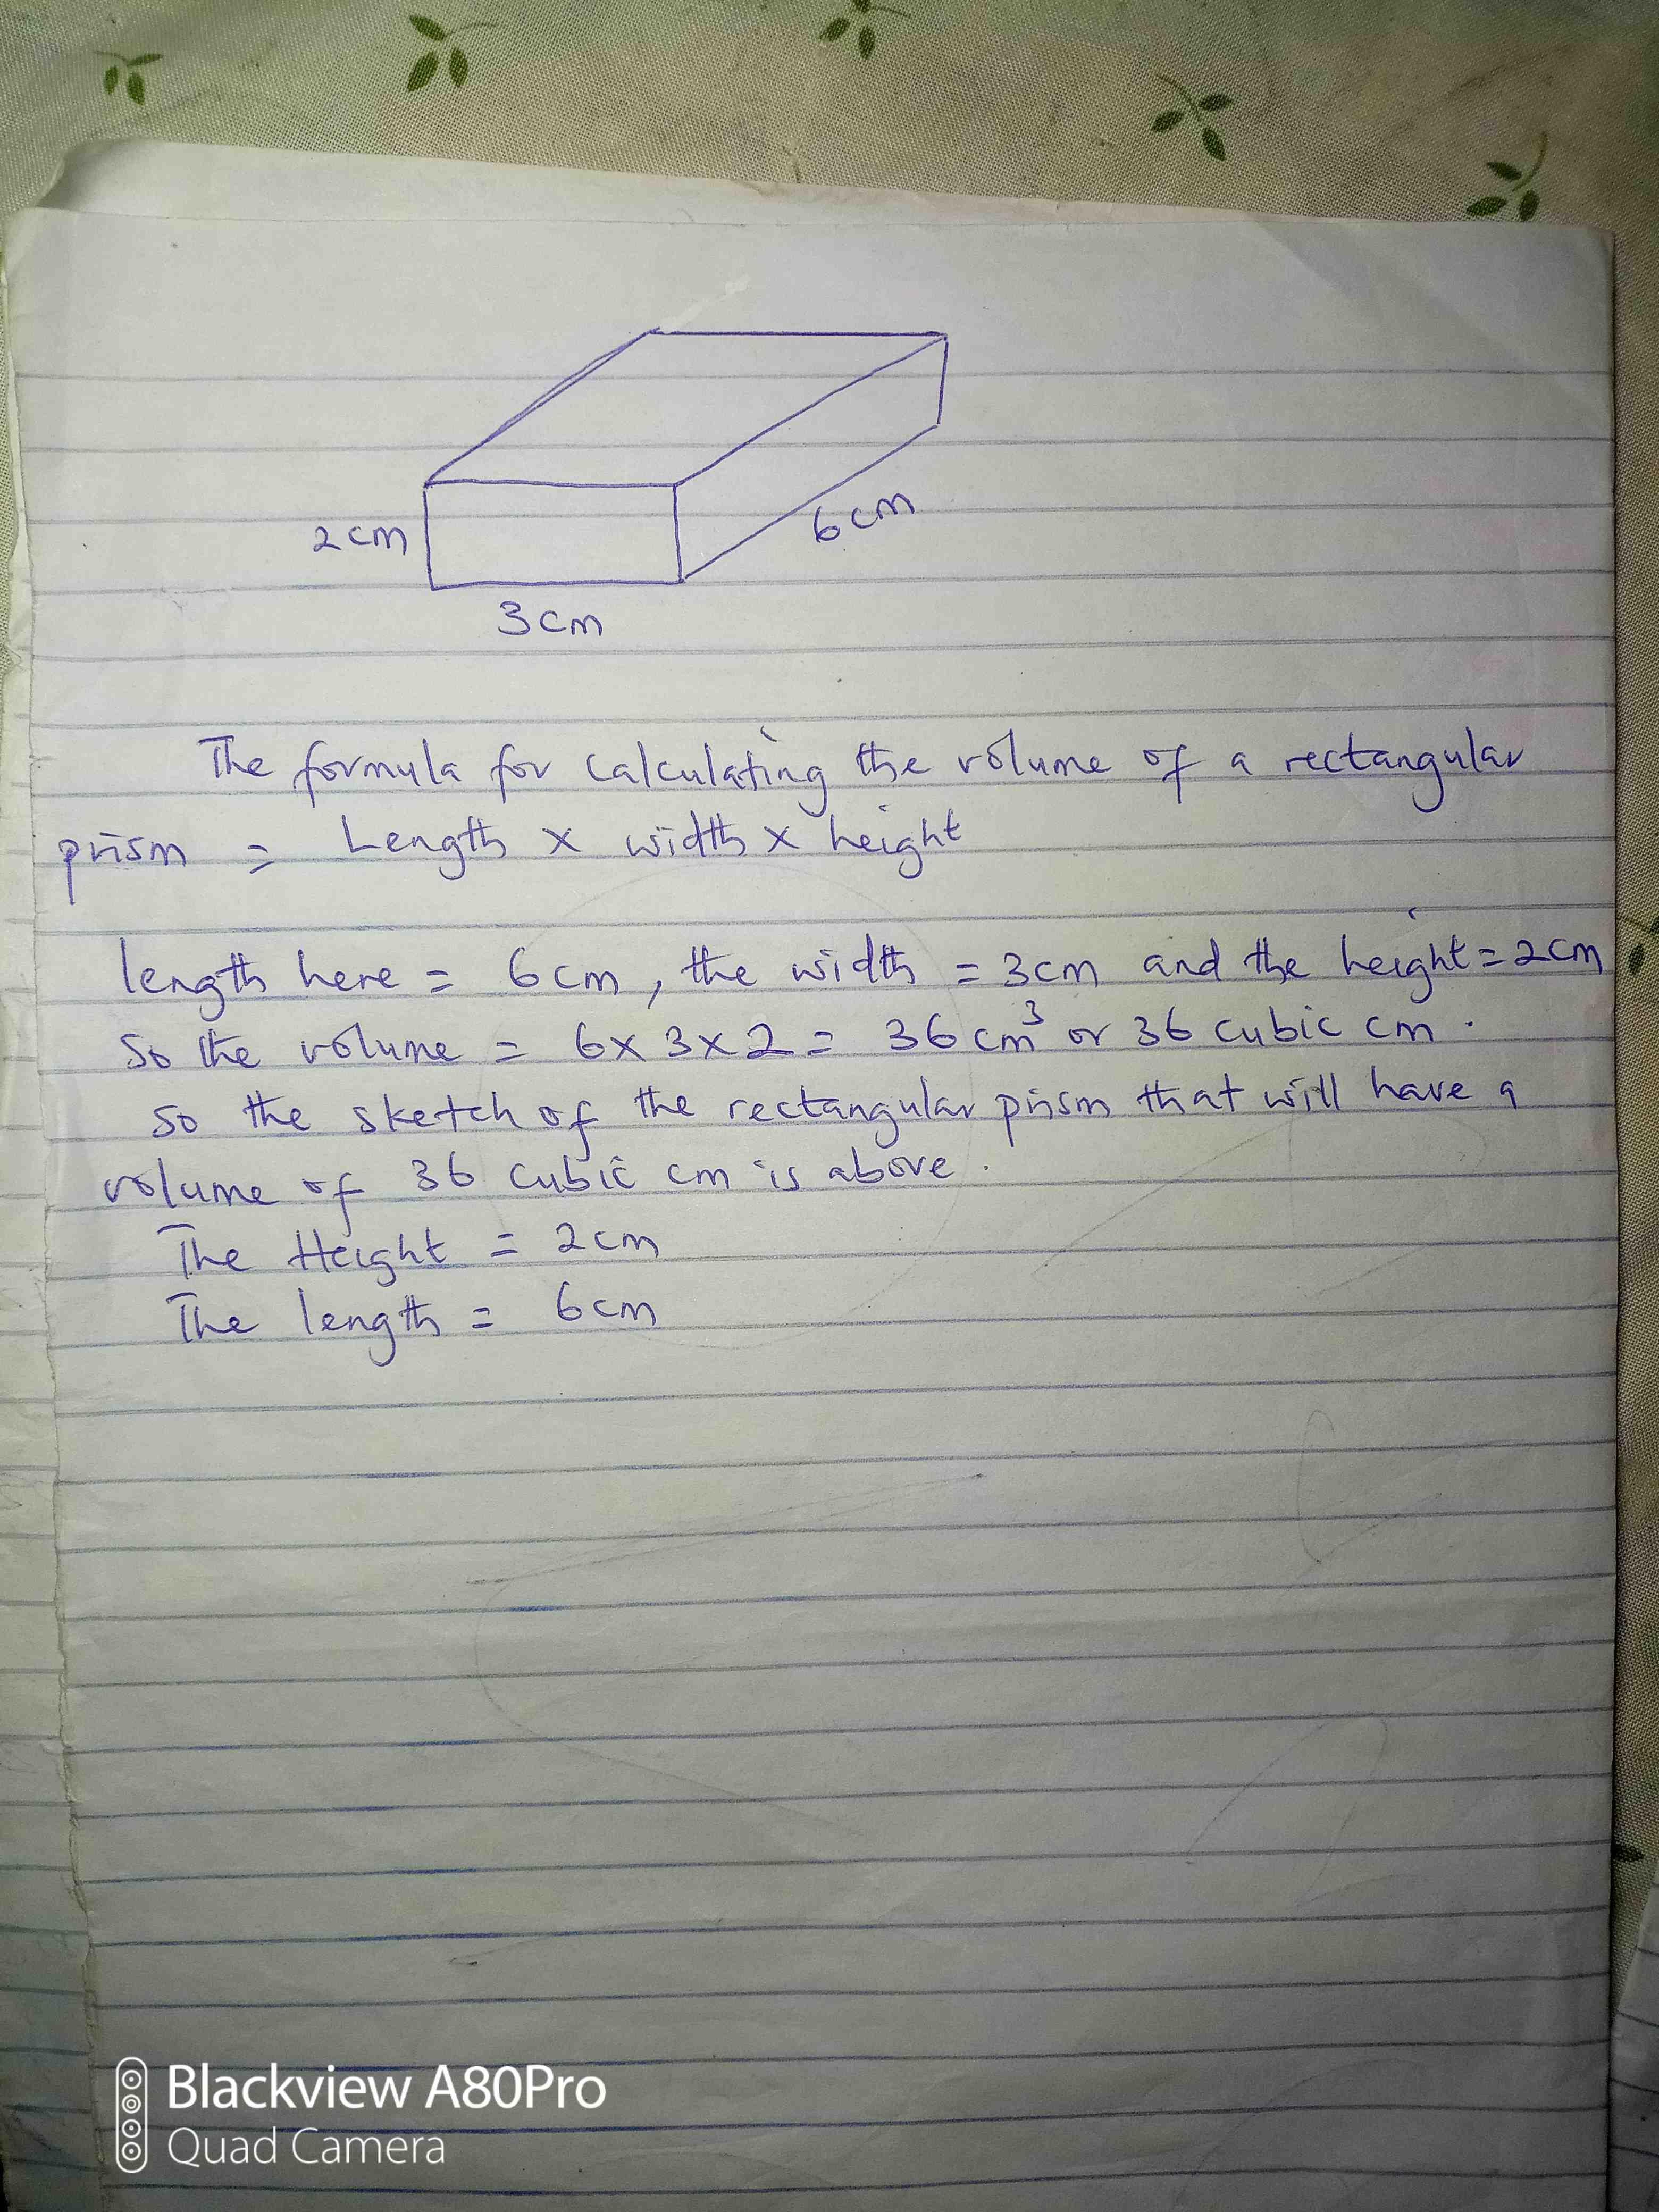 2cm
6cm
3cm
The formula for calculating the volume of a rectangular
prism = Length x width x height
length here = 6cm, the width = 3cm and the height = 2cm
So the volume = 6x3x2 = 36cm³ or 36 cubic cm.
So the sketch of the rectangular prism that will have a
volume of 36 cubic cm is above.
The Height = 2cm
The length = 6cm
Blackview A80Pro
Quad Camera